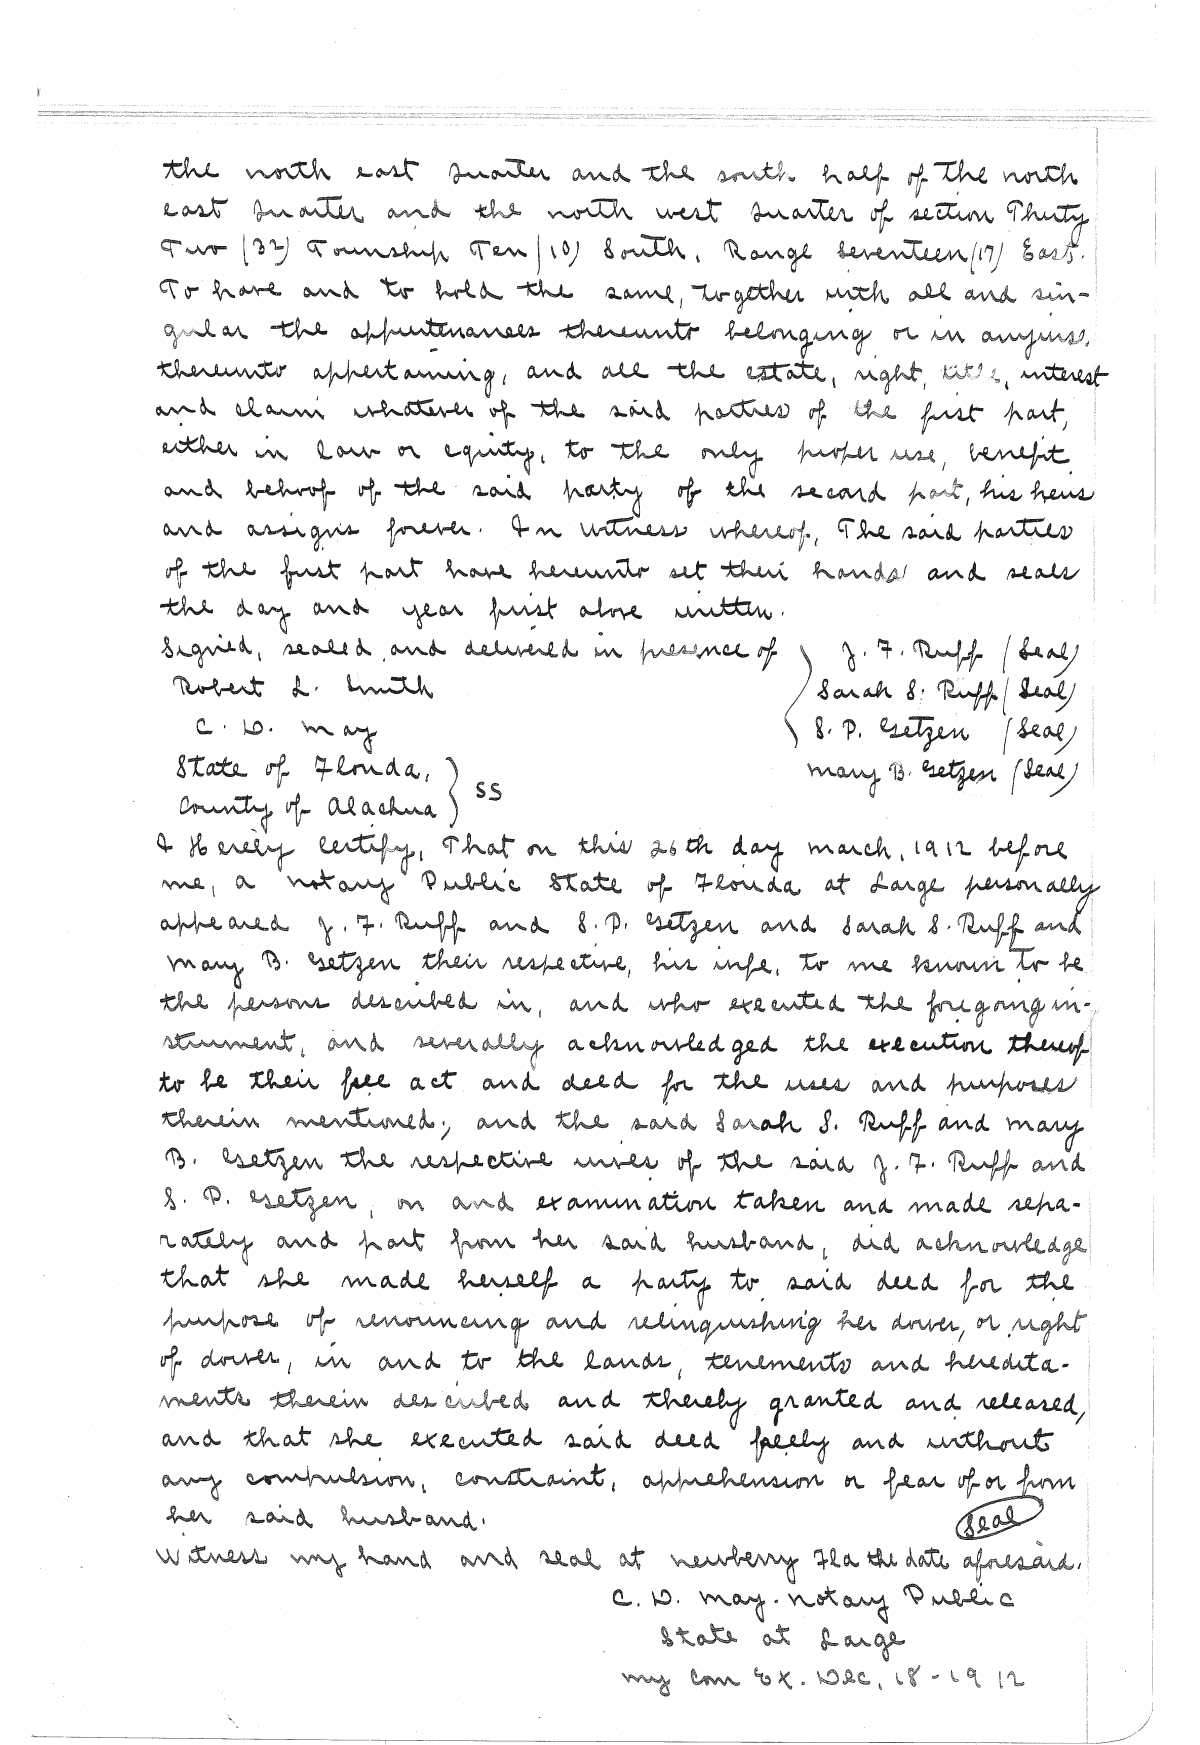 the north east quarter and the south half of the north
east quarter and the north west quarter of section Thirty
Two (32) Township Ten (10) South, Range Seventeen (17) East.
To have and to hold the same, together with all and sin-
gular the appurtenances thereunto belonging or in anywise,
thereunto appertaining, and all the estate, right, title, interest
and claim whatever of the said parties of the first part,
either in law or equity, to the only proper use, benefit
and behoof of the said party of the second part, his heirs
and assigns forever. In witness whereof, The said parties
of the first part have hereunto set their hands and seals
the day and year first above written.
Signed, sealed and delivered in presence of } J. F. Ruff (Seal)
Robert L. Smith Sarah S. Ruff (Seal)
C. D. May S. P. Getzen (Seal)
State of Florida, Mary B. Getzen (Seal)
County of Alachua } SS
I Hereby Certify, That on this 26th day March, 1912 before
me, a Notary Public State of Florida at Large personally
appeared J. F. Ruff and S. P. Getzen and Sarah S. Ruff and
Mary B. Getzen their respective, his wife, to me known to be
the persons described in, and who executed the foregoing in-
strument, and severally acknowledged the execution thereof
to be their free act and deed for the uses and purposes
therein mentioned; and the said Sarah S. Ruff and Mary
B. Getzen the respective wives of the said J. F. Ruff and
S. P. Getzen, on and examination taken and made sepa-
rately and part from her said husband, did acknowledge
that she made herself a party to said deed for the
purpose of renouncing and relinquishing her dower, or right
of dower, in and to the lands, tenements and heredita-
ments therein described and thereby granted and released,
and that she executed said deed freely and without
any compulsion, constraint, apprehension or fear of or from
her said husband. Seal
Witness my hand and seal at Newberry Fla the date aforesaid.
C. D. May. Notary Public
State at Large
My Com Ex. Dec, 18 - 1912